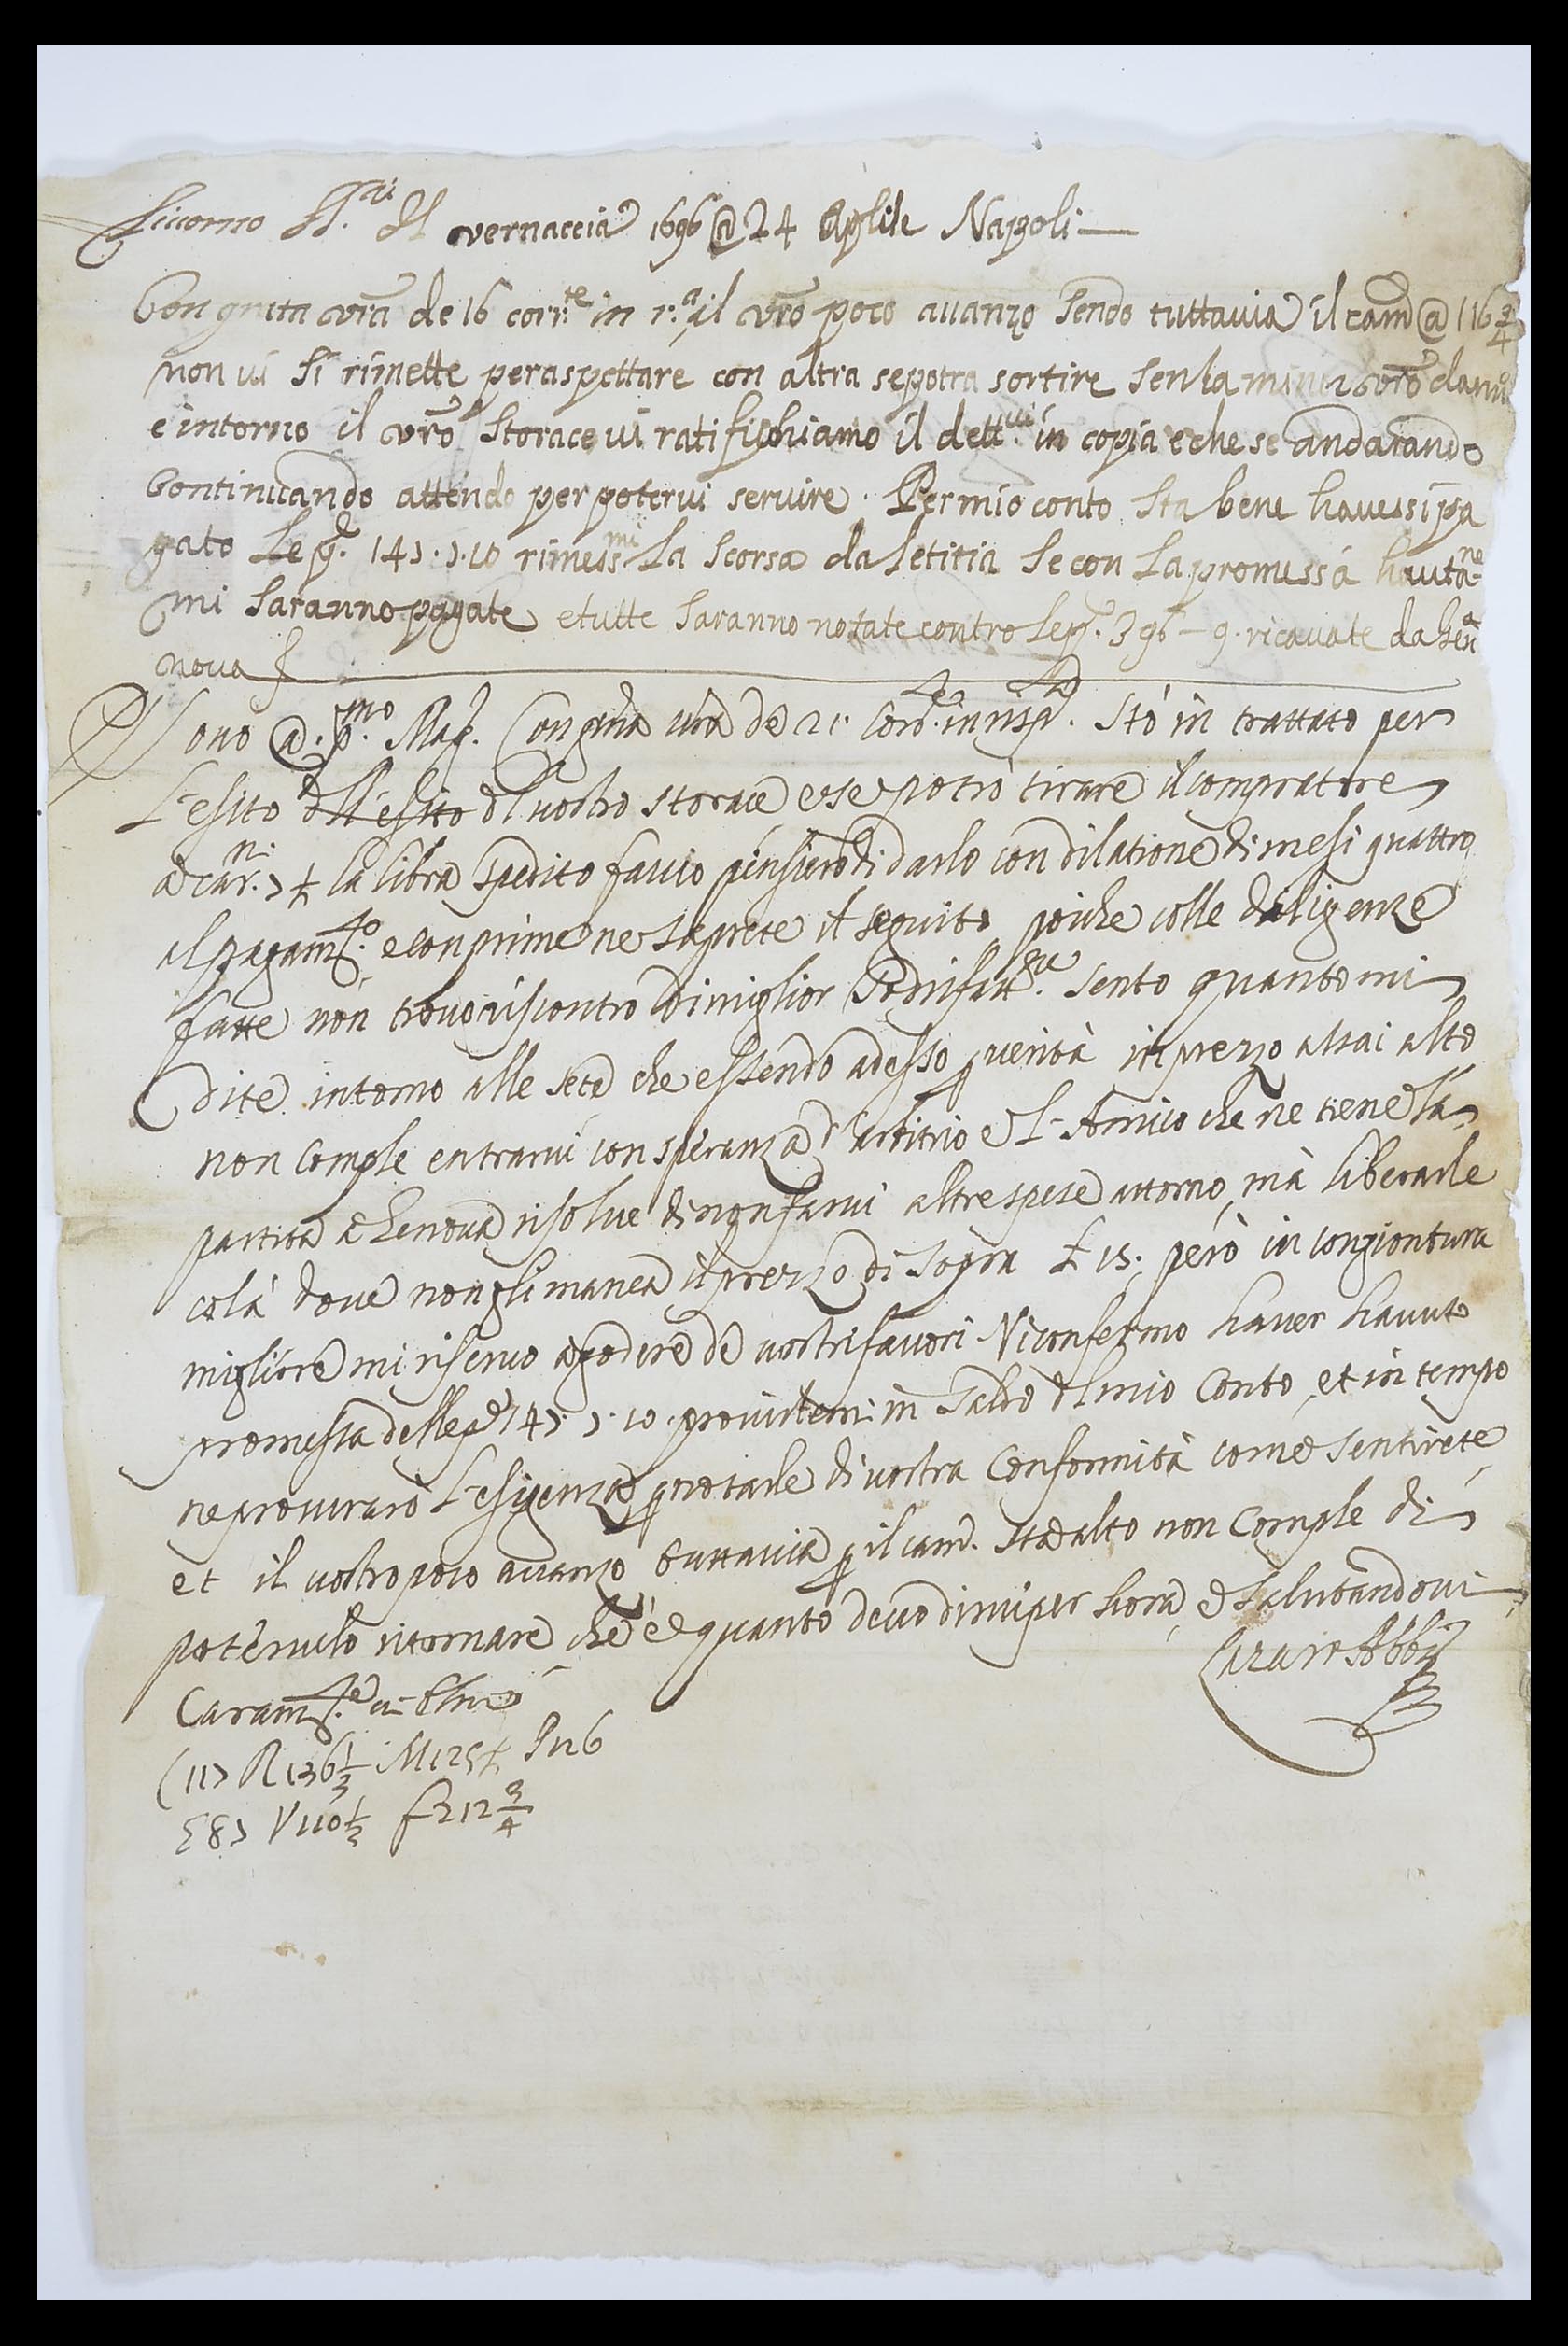 Livorno vernaccia 1696 @ 24 Aprile Napoli
Con grata vra de 16 corr.te in r.a il vro poco auanzo sendo tuttauia il cam.o @ 116 3/4
non ui si rimette per aspettare con altra se potra sortire senza vro danno
e intorno il vro storace ui ratifichiamo il dett.ui in copia e che se andarando
continuando attendo per poterui seruire. Per mio conto sta bene hauessi pa
gato le p. 147.7.10 rimess.mi la scorsa da letitia se con la promessa hauta.ne
mi saranno pagate e tutte saranno notate contro le p. 396 – 9. ricauate da Gen
noua
@. p.mo Mag. Con grata vra de 21 Corr.te in risp.a. Stò in trattato per
L'esito dell'esito del vostro storace e se potrò tirare il compratore
a car.n 7 1/2 la libra spedito faccio pensiero di darlo con dilatione di mesi quattro
al pagam.to e con prime ne saprete il seguito poiche colle diligenze
fatte non trovo riscontro di miglior sodisfatt.ne Sento quanto mi
dite intorno alle sete che essendo adesso per uerità in prezzo assai alto
non comple entrarui con speranza d'arbitrio e L'Amico che ne tiene la
partita a Genoua risolue di non farui altre spese attorno, mà liberarle
colà doue non gli manca il prezzo di sopra £ 15. però in congiontura
migliore mi riseruo a godere de uostri fauori. Vi confermo hauer hauuto
promessa delle p. 147. 7. 10. prouistemi in saldo del mio Conto, et in tempo
ne procurarò L'esigenza per notarle di uostra Conformità come sentirete
et il uostro poco auanzo tuttauia per il cam.o sta alto non Comple di
poteruelo ritornare che è quanto deuo dirui per hora, e salutandoui
Caram.te
Lazaro Abbi
(117 R 136 1/3 M 125 1/2 P 126
£87 V 110 1/2 f 212 3/4